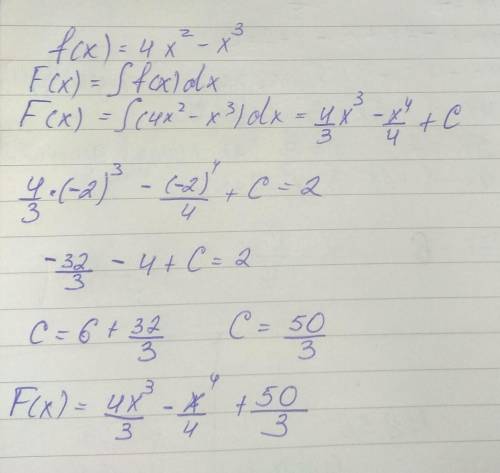 f(x) = 4x² - x³
F(x) = ∫f(x)dx
F(x) = ∫(4x² - x³)dx = 4/3 x³ - x⁴/4 + C
4/3 · (-2)³ - (-2)⁴/4 + C = 2
-32/3 - 4 + C = 2
C = 6 + 32/3 C = 50/3
F(x) = 4x³/3 - x⁴/4 + 50/3